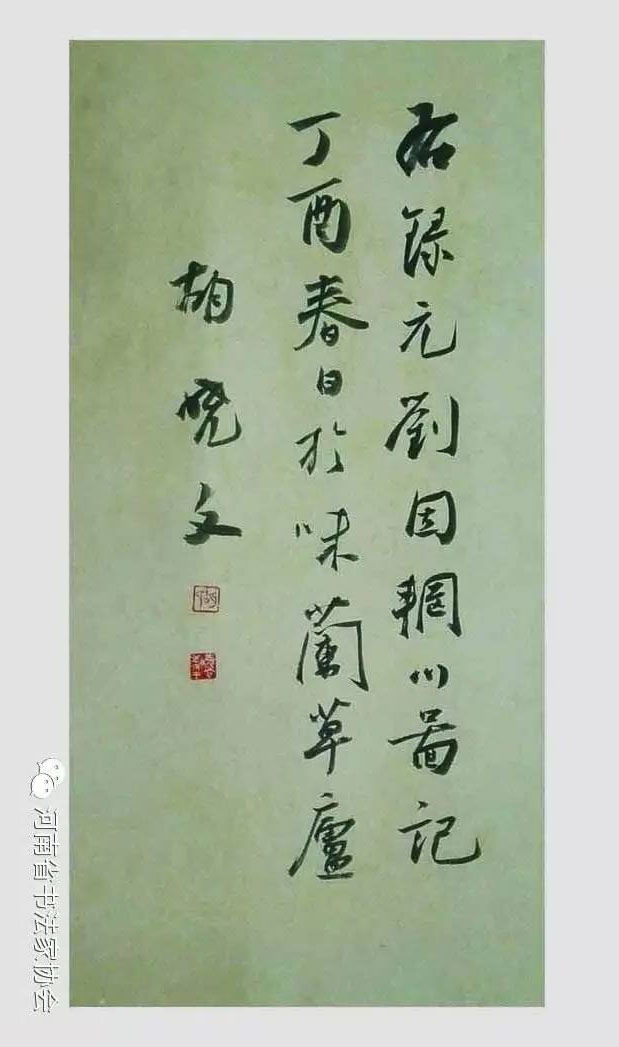 右錄元劉因輞川啚記
丁酉春日於味蘭草廬
胡曉文
河南省书法家协会